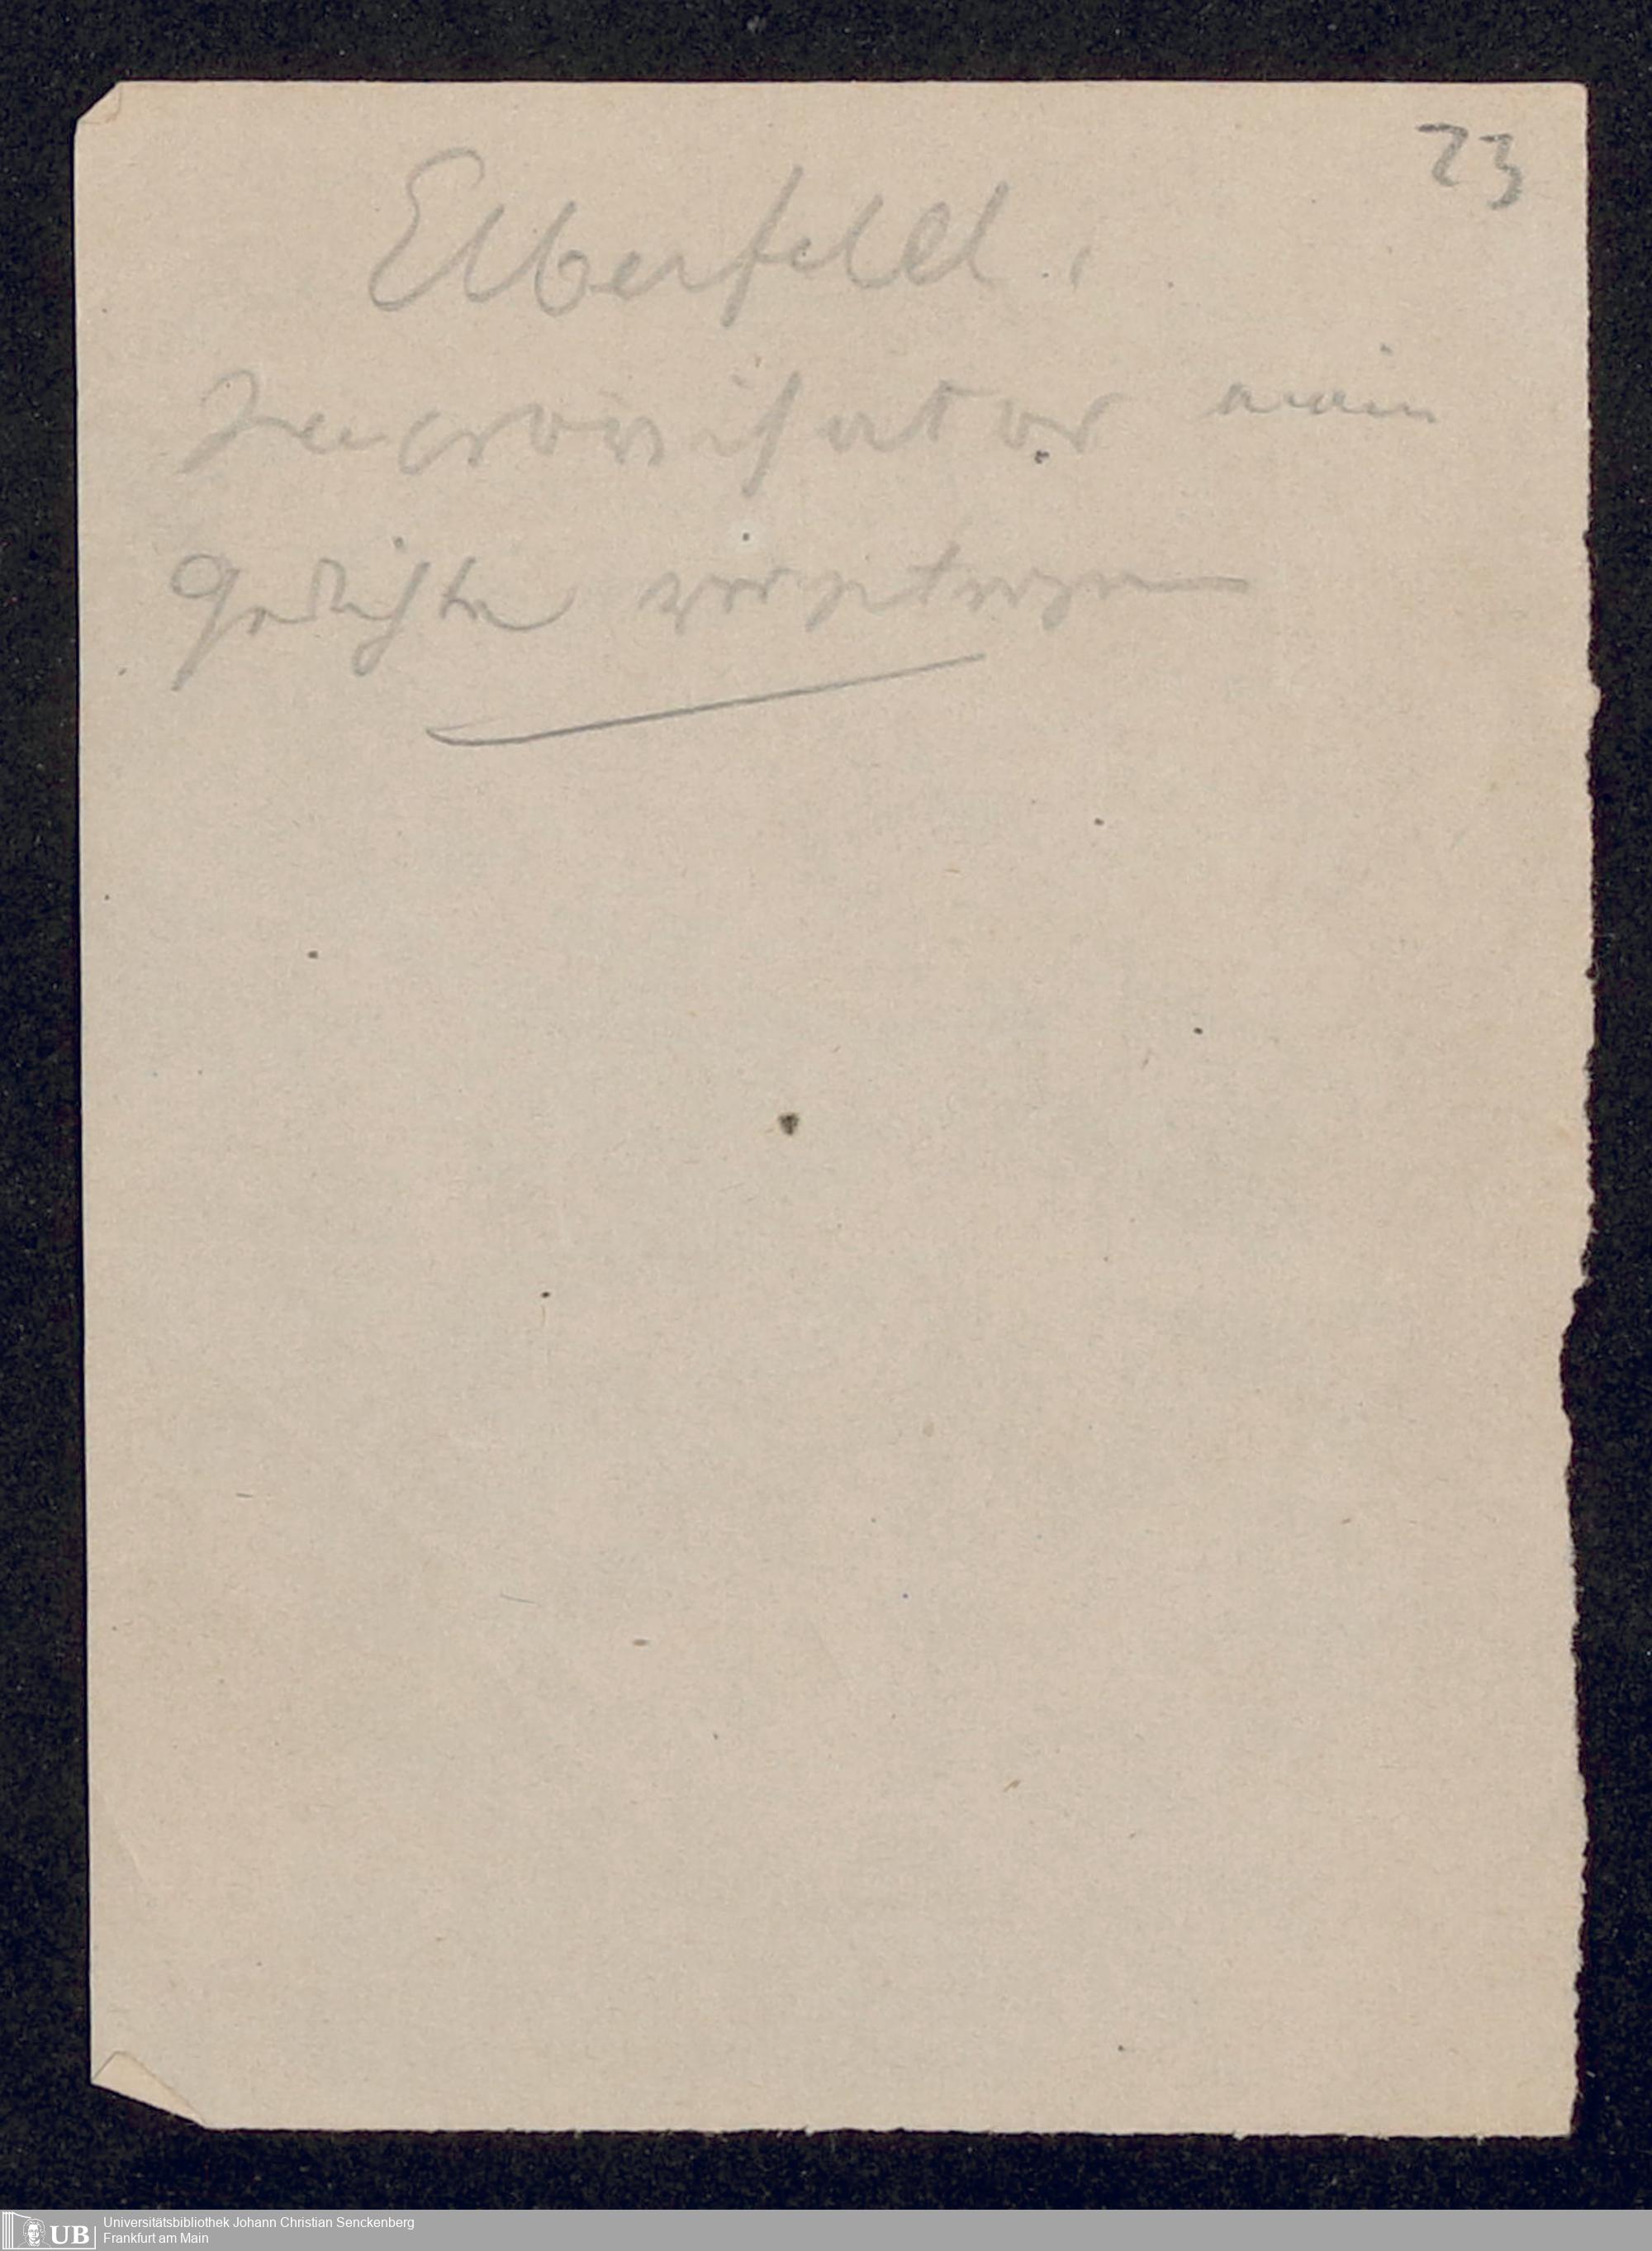 23
Elberfeld.
Improvisator mein
Gedichte vorgetragen
Universitätsbibliothek Johann Christian Senckenberg
Frankfurt am Main
UB